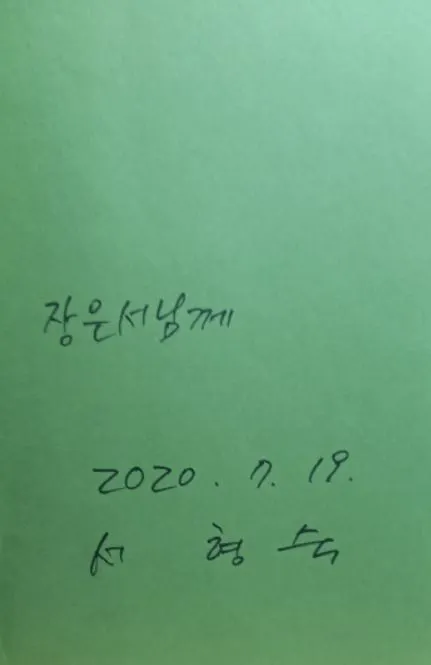 장은서님께
2020. 7. 19.
서 형 숙